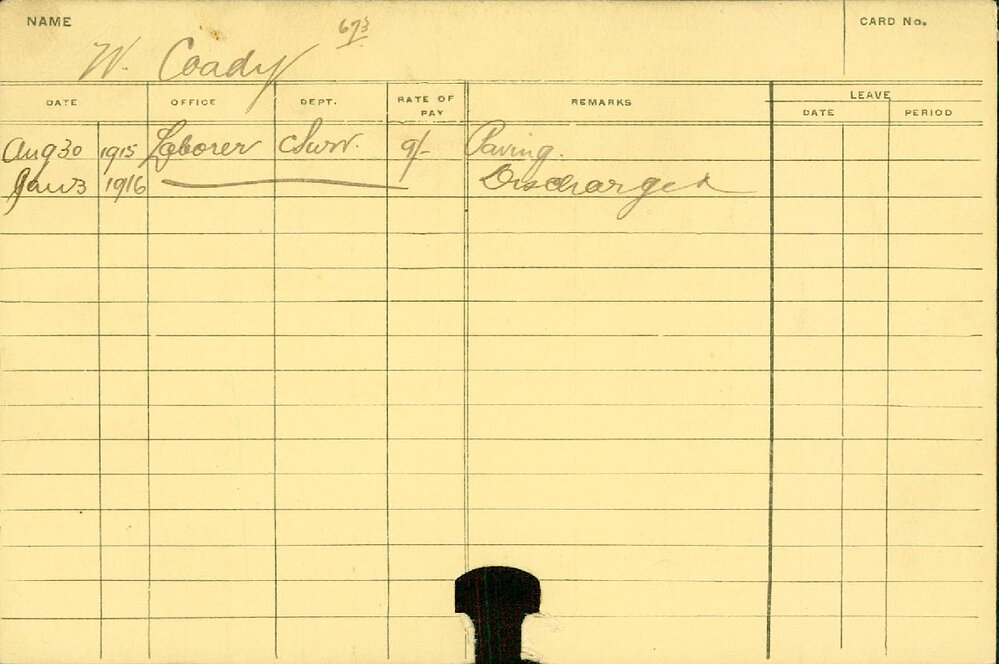 NAME
W. Coady
673
CARD No.
DATE OFFICE DEPT. RATE OF PAY REMARKS LEAVE
DATE PERIOD
Aug 30 1915 Laborer cSurv. 9/- Paving.
Jan 3 1916 Discharged